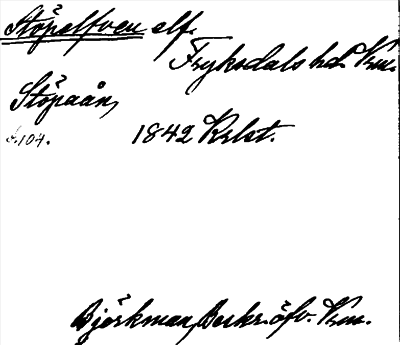 Stöpelfven elf.
Fryksdals hd. Vrm.
Stöpaån,
s. 104.
1842 Krlst.
Björkman, Beskr. öfv. Vrm.